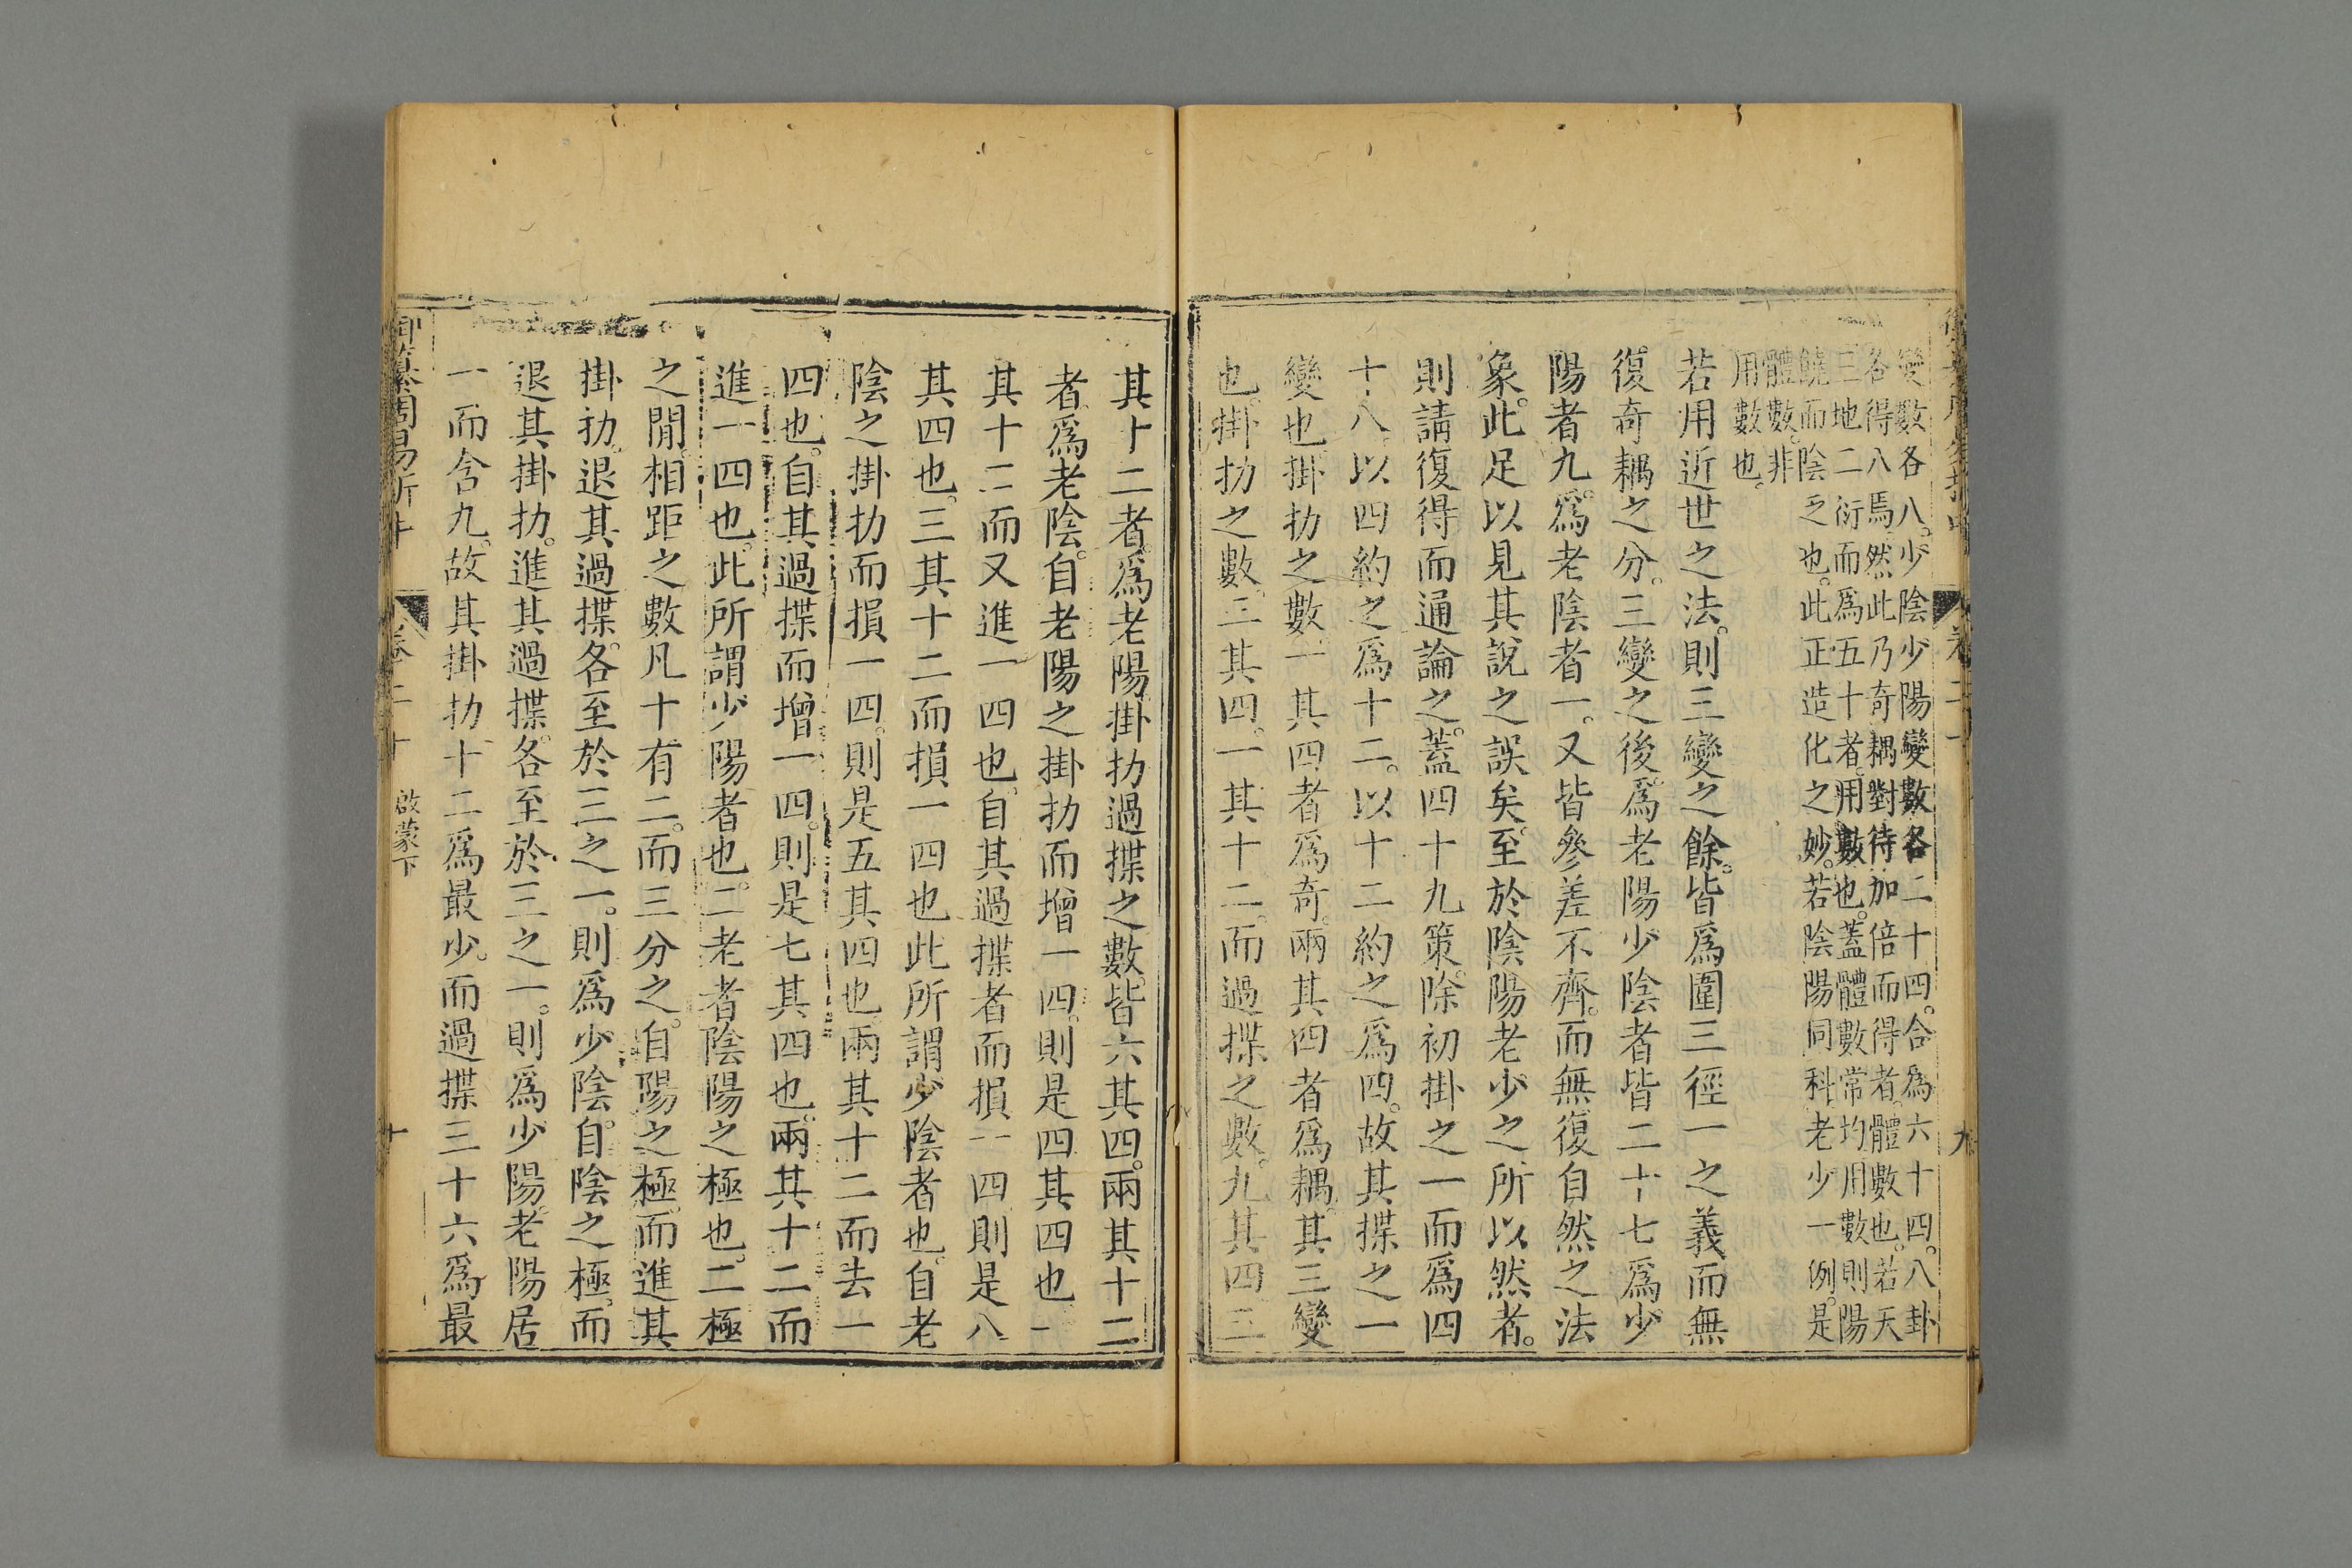 變數各八。少陰少陽變數各二十四。合爲六十四。八卦
各得八焉。然此乃奇耦對待加倍而得者。體數也。若天
三地二衍而爲五十者。用數也。蓋體數常均。用數則陽
饒而陰乏也。此正造化之妙。若陰陽同科。老少一例。是
體數。非
用數也。
若用近世之法。則三變之餘。皆爲圍三徑一之義。而無
復奇耦之分。三變之後。爲老陽少陰者皆二十七。爲少
陽者九。爲老陰者一。又皆參差不齊。而無復自然之法
象。此足以見其說之誤矣。至於陰陽老少之所以然者。
則請復得而通論之。蓋四十九策。除初掛之一而爲四
十八。以四約之爲十二。以十二約之爲四。故其揲之一
變也。掛扐之數。一其四者爲奇。兩其四者爲耦。其三變
也。掛扐之數。三其四。一其十二。而過揲之數。九其四三
其十二者。爲老陽。掛扐過揲之數。皆六其四。兩其十二
者。爲老陰。自老陽之掛扐而增一四。則是四其四也一
其十二而又進一四也。自其過揲者而損一四則是八
其四也。三其十二而損一四也此所謂少陰者也。自老
陰之掛扐而損一四。則是五其四也兩其十二而去一
四也。自其過揲而增一四。則是七其四也。兩其十二而
進一四也。此所謂少陽者也。二老者陰陽之極也。二極
之閒。相距之數凡十有二。而三分之。自陽之極。而進其
掛扐。退其過揲。各至於三之一。則爲少陰。自陰之極。而
退其掛扐。進其過揲。各至於三之一。則爲少陽。老陽居
一而含九。故其掛扐十二爲最少。而過揲三十六爲最
御纂周易折中
卷二十
啟蒙下
十